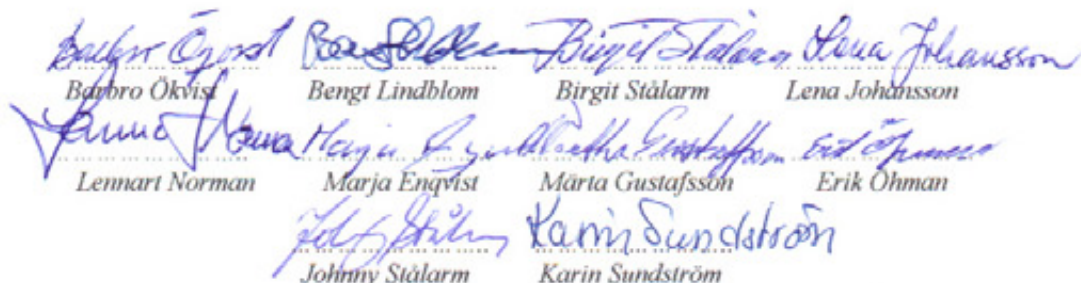 Barbro Ökvist Bengt Lindblom Birgit Stålarm Lena Johansson
Barbro Ökvist Bengt Lindblom Birgit Stålarm Lena Johansson
Marja Märtha Gustafsson Erik Öhman
Lennart Norman Marja Enqvist Märta Gustafsson Erik Öhman
Karin Sundström
Johnny Stålarm Karin Sundström